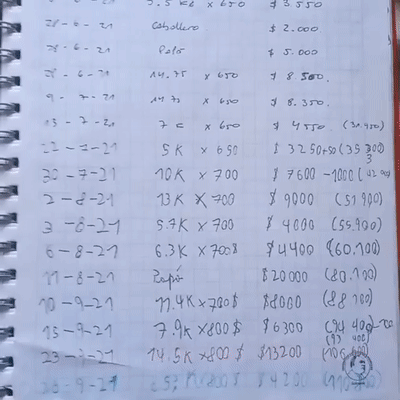 5.5 KG x 650 $ 3550
28-6-21 Caballero $ 2.000
28-6-21 $ 5.000
28-6-21 14.75 x 650 $ 8.500.
9-7-21 14.73 x 650 $ 8.350.
15-7-21 7 K x 650 $ 4550
22-7-21 5K x 650 $ 3250+50 (35 300
30-7-21 10K x 700 $ 7600 -1000
2-8-21 13K x 700 $ 9000 (51.900)
3-8-21 5.7K x 700 $ 4000 (55.900)
6-8-21 6.3K x 700$ $ 4400 (60.100)
11-8-21 $ 20000 (80.100)
10-9-21 11.4K x 700$ $ 8000 (88.100)
15-9-21 7.9K x 800$ $ 6300 (94 400)
23-9-21 14.5K x 800$ $ 13200
x 800$ $ 4200